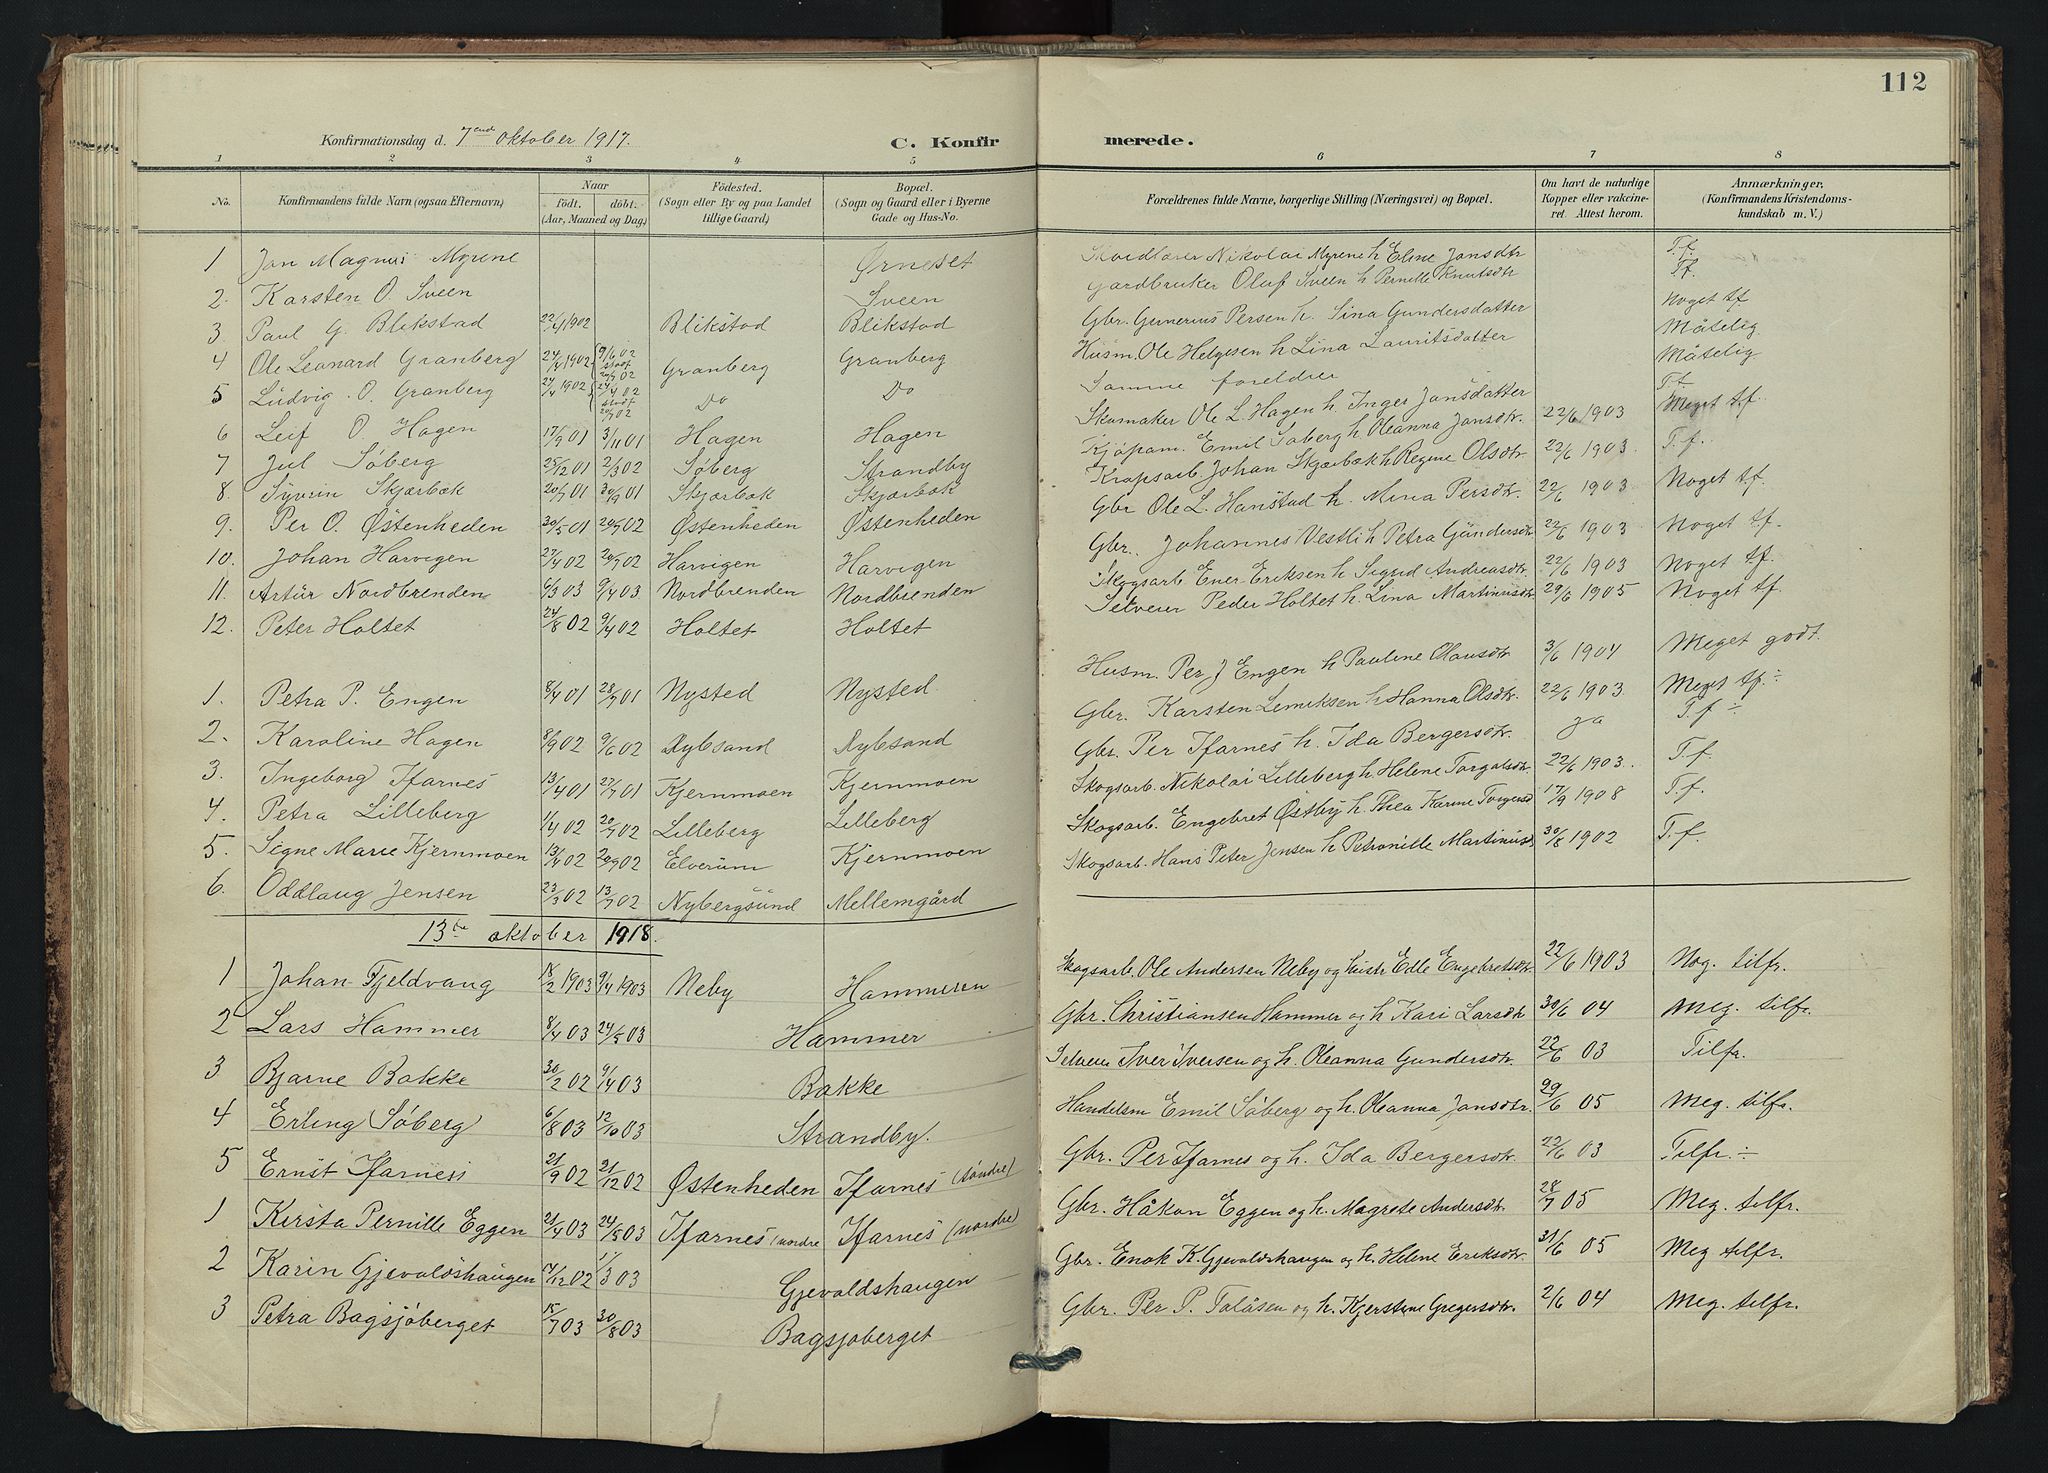 112
Konfirmationsdag d. 7end Oktober 1917. C. Konfirmerede.
1 2 3 4 5 6 7 8
No. Konfirmandens fulde Navn (ogsaa Efternavn) Naar födt. döbt. (Aar, Maaned og Dag) Födested. (Sogn eller By og paa Landet tillige Gaard) Bopæl. (Sogn og Gaard eller i Byerne Gade og Hus-No. Forældrenes fulde Navne, borgerlige Stilling (Næringsvei) og Bopæl. Om havt de naturlige Kopper eller vakcineret. Attest herom. Anmærkninger, (Konfirmandens Kristendomskundskab m. V.)
1 Jon Magnus Myrene Ørneset Skredder Nikolai Myrene h. Eline Jansdtr T.f.
2. Karsten O. Sveen Sveen Gardbruker Oluf Sveen h Pernille Knutsdtr Tf.
3 Paul G. Blikstad 22/4 1902 Blikstad Blikstad Gbr. Gunerius Persen h. Sina Gundersdatter Noget tf
4 Ole Leonard Granberg 24/4 1902 9/6 02 stadf 20/7 02 Granberg Granberg Husm. Ole Helgesen h Lina Lauritsdatter Måtelig
5 Ludvig O. Granberg 24/4 1902 24/4 02 stadf 20/7 02 Do Do Samme foreldrer Måtelig
6 Leif O. Hagen 17/9 01 3/11 01 Hagen Hagen Skomaker Ole L. Hagen h. Inger Jansdatter 22/6 1903 T.f.
7 Jul Søberg 25/12 01 2/3 02 Søberg Strandby Kjøpm. Emil Søberg h. Oleanna Jansdtr. 22/6 1903 Meget tf.
8. Syverin Skjærbæk 20/7 01 Skjærbæk Skjærbæk Kropsarb Johan Skjærbæk h Regine Olsdtr. 22/6 1903 T.f.
9. Per O. Østenheden 30/5 01 20/7 02 Østenheden Østenheden Gbr Ole L. Hanstad h. Mina Persdtr. 22/6 1903 Noget tf.
10. Johan Harvigen 27/4 02 20/7 02 Harvigen Harvigen Gbr. Johannes Vestli h Petra Gundersdtr 22/6 1903 Noget tf.
11. Artur Nordbrenden 6/3 03 9/4 03 Nordbrenden Nordbrenden Skogsarb. Ener Eriksen h Sigrid Andreasdtr 22/6 1903 Noget tf.
12. Peter Holtet 24/8 02 9/4 02 Holtet Holtet Selveier Peder Holtet h. Lina Martinusdtr 29/6 1905 Noget tf.
1. Petra P. Engen 8/4 01 28/7 01 Nysted Nysted Husm. Per J Engen h Pauline Olausdtr 3/6 1904 Meget godt.
2. Karoline Hagen 8/9 02 9/6 02 Rybsand Rybsand Gbr. Karsten Lemiksen h Hanna Olsdtr. 22/6 1903. Meget tf. ÷
3. Ingeborg Ifarnes 13/4 01 27/7 01 Kjernmoen Kjernmoen Gbr. Per Ifarnes h. Ida Bergersdtr. ja T.f ÷
4. Petra Lilleberg 1/4 02 20/7 02 Lilleberg Lilleberg Skogsarb. Nikolai Lilleberg h. Helene Torgalsdtr. 22/6 1903. T.f.
5. Signe Marie Kjernmoen 13/4 02 20/9 02 Elverum Kjernmoen Skogsarb. Engebret Østby h. Thea Karine Torgersd 17/9 1908 T.f.
6. Oddlaug Jensen 23/3 02 13/7 02 Nybergsund Mellemgård Skogsarb. Hans Peter Jensen h Petronille Martinusd 30/8 1902 T.f.
13de oktober 1918.
1 Johan Fjeldvang 18/2 1903 9/4 1903 Neby Hammeren Skogsarb. Ole Andersen Neby og hustr Edle Engebretsdtr. 22/6 1903 Nog. tilfr.
2 Lars Hammer 8/4 03 24/5 03 Hammer Gbr. Christiansen Hammer og h Kari Larsdtr 30/6 04 Meg. tilfr.
3 Bjarne Bakke 30/2 02 9/4 03 Bakke Selveier Iver Iversen og h. Oleanna Gundersdtr. 22/6 03 Tilfr.
4 Erling Søberg 6/8 03 12/10 03 Strandby. Handelsm Emil Søberg og h. Oleanna Jansdtr. 29/6 05 Meg. tilfr.
5 Ernst Ifarnes 21/9 02 21/12 02 Østenheden Ifarnes (søndre) Gbr. Per Ifarnes og h. Ida Bergersdtr. 22/6 03 Tilfr. ÷
1 Kirsta Pernille Eggen 21/4 03 24/5 03 Ifarnes (nordre Ifarnes (nordre) Gbr. Håkon Eggen og h. Magrete Andersdtr. 28/7 05 Meg. tilfr.
2 Karin Gjevaldshaugen 17/12 02 1/3 03 Gjevaldshaugen Gbr. Enok K. Gjevaldshaugen og h. Helene Eriksdtr. 31/6 05 Meg tilfr.
3 Petra Bagsjøberget 15/7 03 30/8 03 Bagsjøberget Gbr. Per P. Talåsen og h. Kjerstine Gregersdtr. 2/6 04 Meg. tilfr.